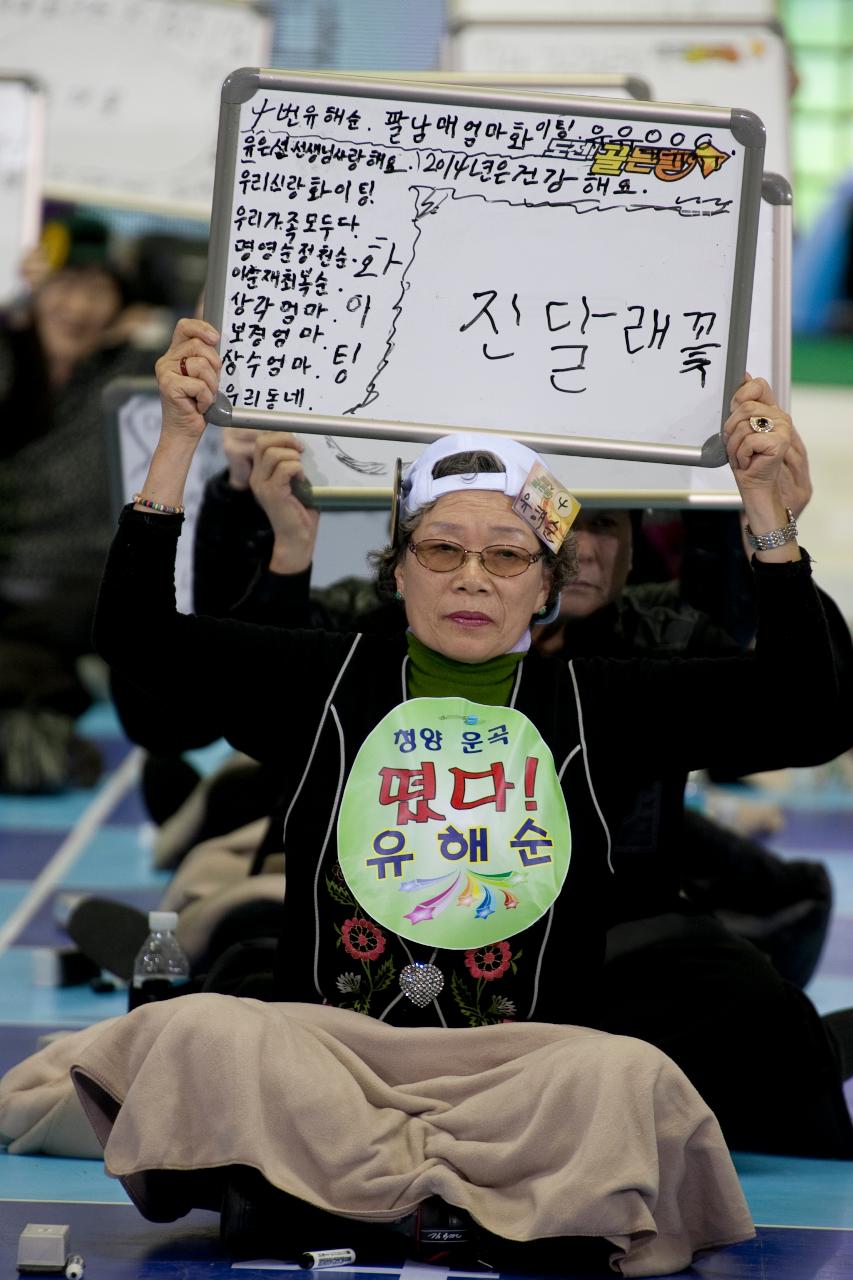 4번유해순. 팔남매엄마화이팅!
도전! 골든벨
유은선선생님사랑해요. 2014년은건강해요.
우리신랑화이팅!
우리가족모두다.
명영순정천순.
이순재최복순.
상각엄마.
보경엄마.
상수엄마.
우리동네.
화
이
팅
진달래꽃
4
유해순
청양 운곡
떴다!
유해순